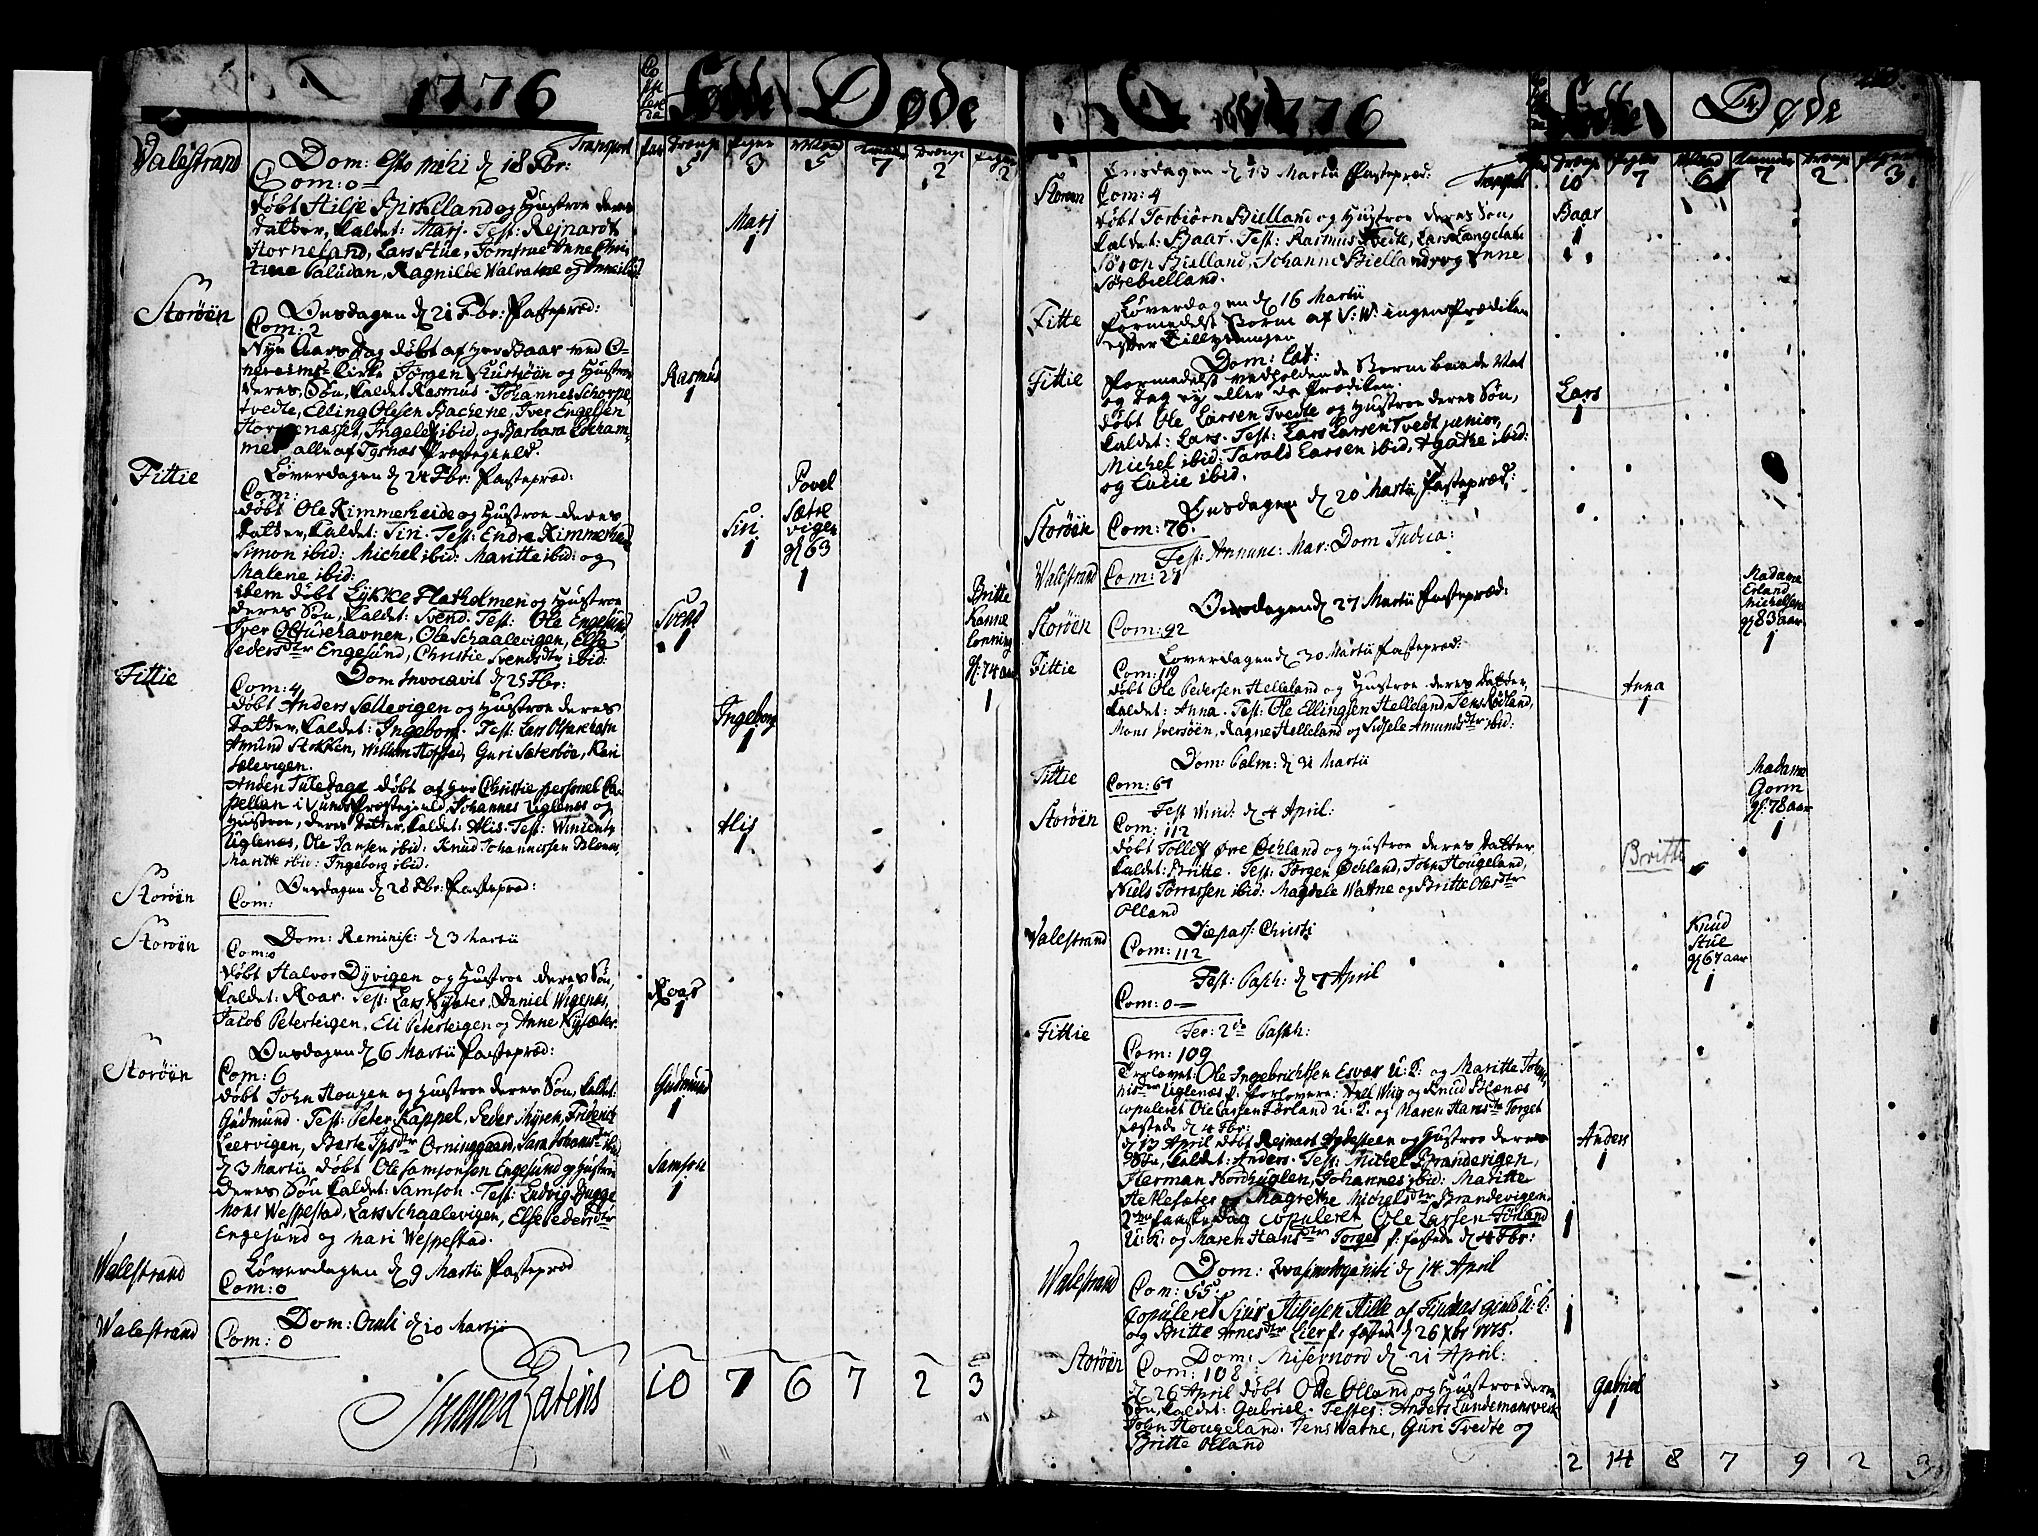 1776
Fødde Døde
Transport
Valestrand
Dom: Esto mihi d 18 Fbr:
5 3 5 7 2 2
Com: 0
døbt Hilje Birkelland og Hustroe deres
datter, kaldet: Marj. Test: Rejnardt
Horneland, Lars Stue, Jomfrue Anne Chri-
stine Paludan, Ragnilde Walvatne og Anne ibid
Marj
1
Storøen
Onsdagen d 21 Fbr: Fastepræd:
Com: 2
Nye Aars Dag døbt af Hr Baar ved
Kirke Jørgen og Hustroe
deres Søn, kaldet Rasmus. Johannes
tvedte, Elling Olesen Bachene, Iver Engelsen
Ingelef ibid, og Barbara
alle af Tysnæs Præstegield.
Rasmus
1
Fittie
Løverdagen d 24 Fbr: Fastepræd:
Com:
døbt Ole Rimmereide og Hustroe deres
datter, kaldet: Siri. Test: Endre Rimmereid
Simon ibid: Michel ibid: Maritte ibid: og
Malene ibid:
Siri
1
Povel
Sætre
vigen
gl 63
1
item døbt Lykke Flatholmen og Hustroe
deres Søn, kaldet: Svend. Test: Ole Engesund,
Iver Olfursehavnen, Ole Schaalevigen, Else
Peders dtr Engesund, Christie Svends dtr ibid:
Svend
1
Britte
Kanne
Lønning
gl: 74 aar
1
Fittie
Dom Invocavit d 25 Fbr:
Com: 4
døbt Anders Sællevigen og Hustroe deres
datter, kaldet: Ingeborg. Test: Lars Olfursehavn
Amund Stokken, Willum Hofstad, Guri Sæterbøe, Kari
Sælevigen.
Ingeborg
1
Anden Juledage døbt af Hr Christie personel Ca-
pellan i Præstegield, Johannes Uglenæs og
Hustroe, deres datter, kaldet: Alis. Test: Wincents
Uglenæs, Ole Jansen ibid: Knud Johannessen
Maritte ibid: Ingeborg ibid.
Alis
1
Storøen
Onsdagen d 28 Fbr: Fastepræd:
Com:
Storøen
Dom: Reminisc: d 3 Martii
Com: 0
døbt Halvor Dyvigen og Hustroe deres Søn,
kaldet: Roar. Test: Lars Nysæter, Daniel Wigenæs,
Jacob Peterteigen, Eli Peterteigen og Anne Nysæter.
Roar
1
Storøen
Onsdagen d 6 Martii Fastepræd:
Com: 6
døbt John Hougen og Hustroe deres Søn, kaldet:
Gudmund. Test: Peter Kappel, Peder Myren, Friderich
Leervigen, Barte Orninggaard, Sara Johans dtr ibid
Gudmund
1
d 3 Martii døbt Ole Samsonsen Engesund og Hustroe
deres Søn kaldet: Samson. Test: Ludvig Bugge
Mons Wespestad, Lars Schaalevigen, Else Peders dtr
Engesund og Mari Wespestad.
Samson
1
Walestrand
Løverdagen d 9 Martii Fastepræd
Com: 0
Walestrand
Dom: Oculi d 10 Martii
Com: 0
Summa Lateris
10 7 6 7 2 3
1776
Fødde Døde
Storøen
Onsdagen d 13 Martii Fastepræd:
10 7 6 7 2 3
Com: 4
døbt Torbiørn Bielland og Hustroe deres Søn,
kaldet: Baar. Test: Rasmus Tvedte, Lars Langeland
Søren Bielland, Johanne Bielland, og Anne
Sørebielland.
Baar
1
Fitte
Løverdagen d 16 Martii
formedelst Storm af S: W: ingen Prædiken
efter Tillysningen
Fittie
Dom: Læt:
formedelst vedholdende Storm baade Nat
og Dag ej eller da Prædiken.
døbt Ole Larsen Tvedte og Hustroe deres Søn,
kaldet: Lars. Test: Lars Larsen Tvedt junior,
Michel ibid: Tarald Larsen ibid, Agathe ibid:
og Lucie ibid.
Lars
1
Storøen
Onsdagen d 20 Martii, Fastepræd:
Com: 76.
Walestrand
Fest: Annunc: Mar: Dom Judica:
Com: 27
Storøen
Onsdagen d 27 Martii Fastepræd:
Com: 92
Madame
Erland
Michelsen
gl 83 aar
1
Fittie
Løverdagen d 30 Martii Fastepræd:
Com: 119
døbt Ole Pedersen Helleland og Hustroe deres datter,
kaldet: Anna. Test: Ole Ellingsen Helleland, Jens Rødland,
Mons Iversøen, Ragne Helleland og Sidsele Amunds dtr ibid:
Anna
1
Fittie
Dom: Palm: d 31 Martii
Com: 67
Madame
Gorm
gl: 78 aar
1
Storøen
Fest Virid: d 4 April:
Com: 112
døbt Tollef Øvre Øchland og Hustroe deres datter
kaldet: Britte. Test: Jørgen Øchland, John Hougeland,
Niels Torressen ibid: Magdele Watne og Britte Oles dtr
Olland
Britte
Valestrand
Die pass: Christi
Com: 112
Knud
Stue
gl 67 aar
1
Fest: Pasch: d 7 April
Com: 0
Fittie
Fer: 2da Pasch:
Com: 109
Trolovet Ole Ingebrichtsen Esvær U: K: og Maritte Johan-
nis dtr Uglenæs P: forlovere: Wiig og Knud
copuleret Ole Larsen Førland U: K: og Maren Hans dtr Torget
fæstede d 4 Fbr:
d 13 April døbt Rejnart Andesteen og Hustroe deres
Søn, kaldet: Anders. Test: Michel Brandevigen,
Herman Nordhuglen, Johannes ibid: Maritte
og Magrethe Michels dtr Brandevigen.
Anders
1
2den Paaske Dag copuleret Ole Larsen Førland
U: K: og Maren Hans dtr Torget P: fæstede d 4 Fbr:
1
Walestrand
Dom: Quasimodogeniti d 14 April
Com: 55:
Copuleret Siur Hiljesen Hille af Findaas gield U: K:
og Britte Arnes dtr Eier P: fæstede d 26 Xbr 1775.
1
Storøen
Dom: Misericord d 21 April:
Com: 108
d 26 April døbt Odde Olland og Hustroe deres
Søn, kaldet: Gabriel. Testes: Anders Lundemansverk
John Hougeland. Jens Watne, Guri Tvedte og
Britte Olland
Gabriel
1
2 14 8 7 9 2 3